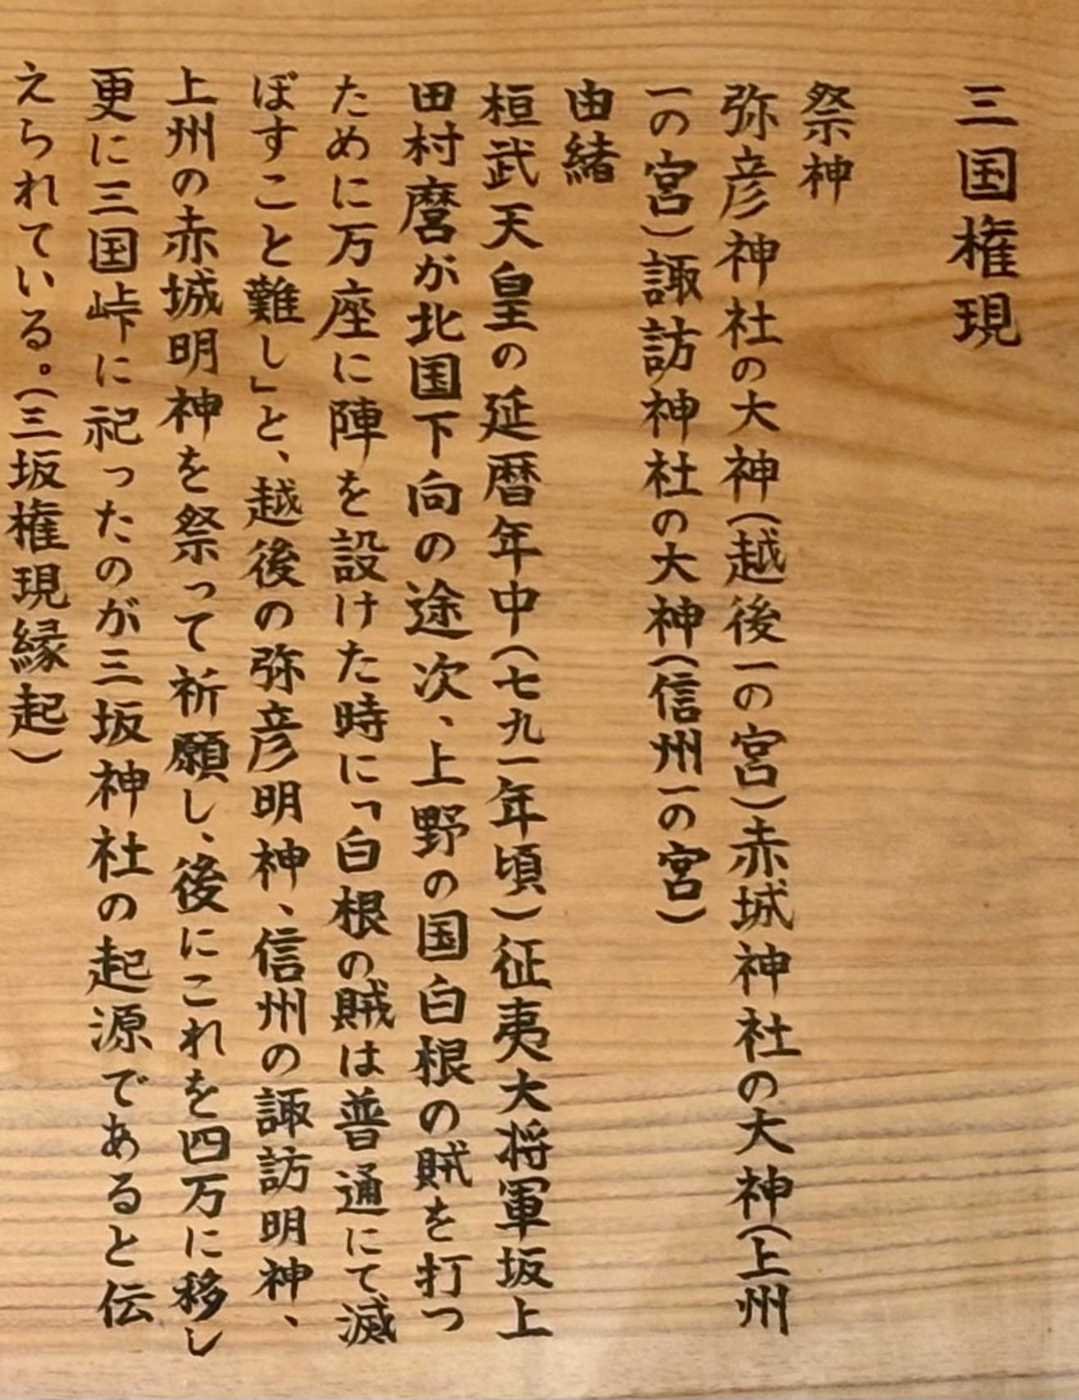 三国権現
祭神
弥彦神社の大神(越後一の宮)赤城神社の大神(上州
一の宮)諏訪神社の大神(信州一の宮)
由緒
桓武天皇の延暦年中(七九一年頃)征夷大将軍坂上
田村麿が北国下向の途次、上野の国白根の賊を打つ
ために万座に陣を設けた時に「白根の賊は普通にて滅
ぼすこと難し」と、越後の弥彦明神、信州の諏訪明神、
上州の赤城明神を祭って祈願し、後にこれを四万に移し
更に三国峠に祀ったのが三坂神社の起源であると伝
えられている。(三坂権現縁起)